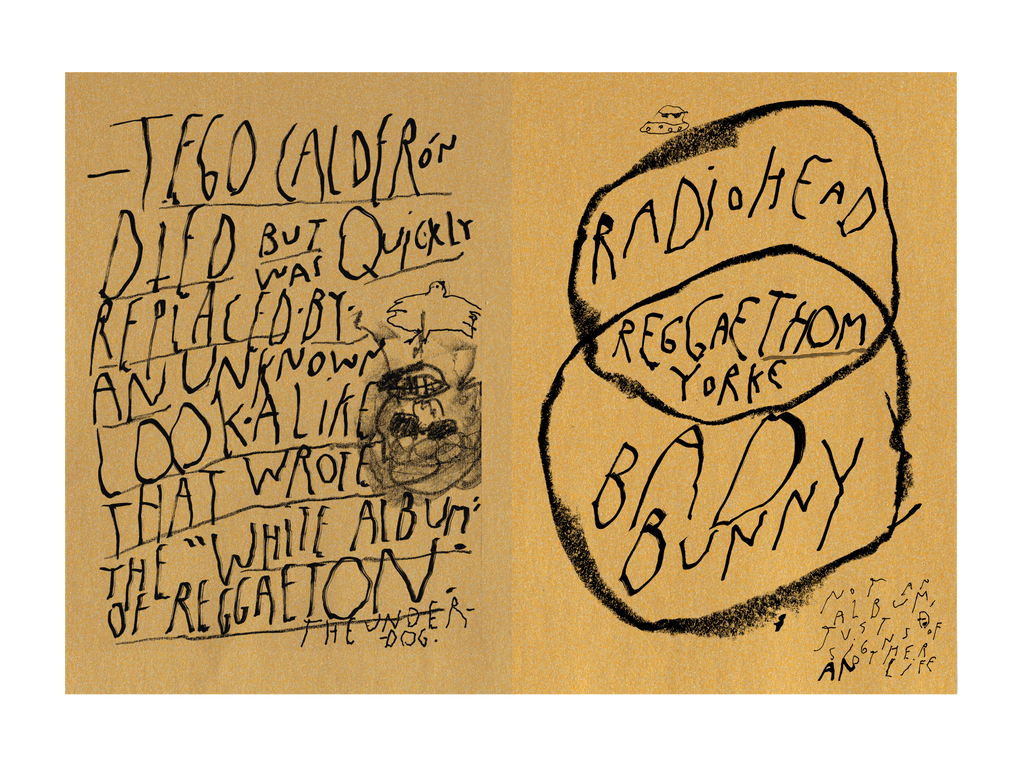 —TEGO CALDERÓN
DIED BUT WAS QUICKLY
REPLACED·BY·
AN UNKNOWN
LOOK·ALIKE
THAT WROTE
THE "WHITE ALBUM"
OF REGGAETON.
THE UNDER-
DOG.
RADIOHEAD
REGGAETHOM
YORKE
BAD
BUNNY
NOT AN
ALBUM,
JUST
SIGNS OF
ANOTHER
LIFE